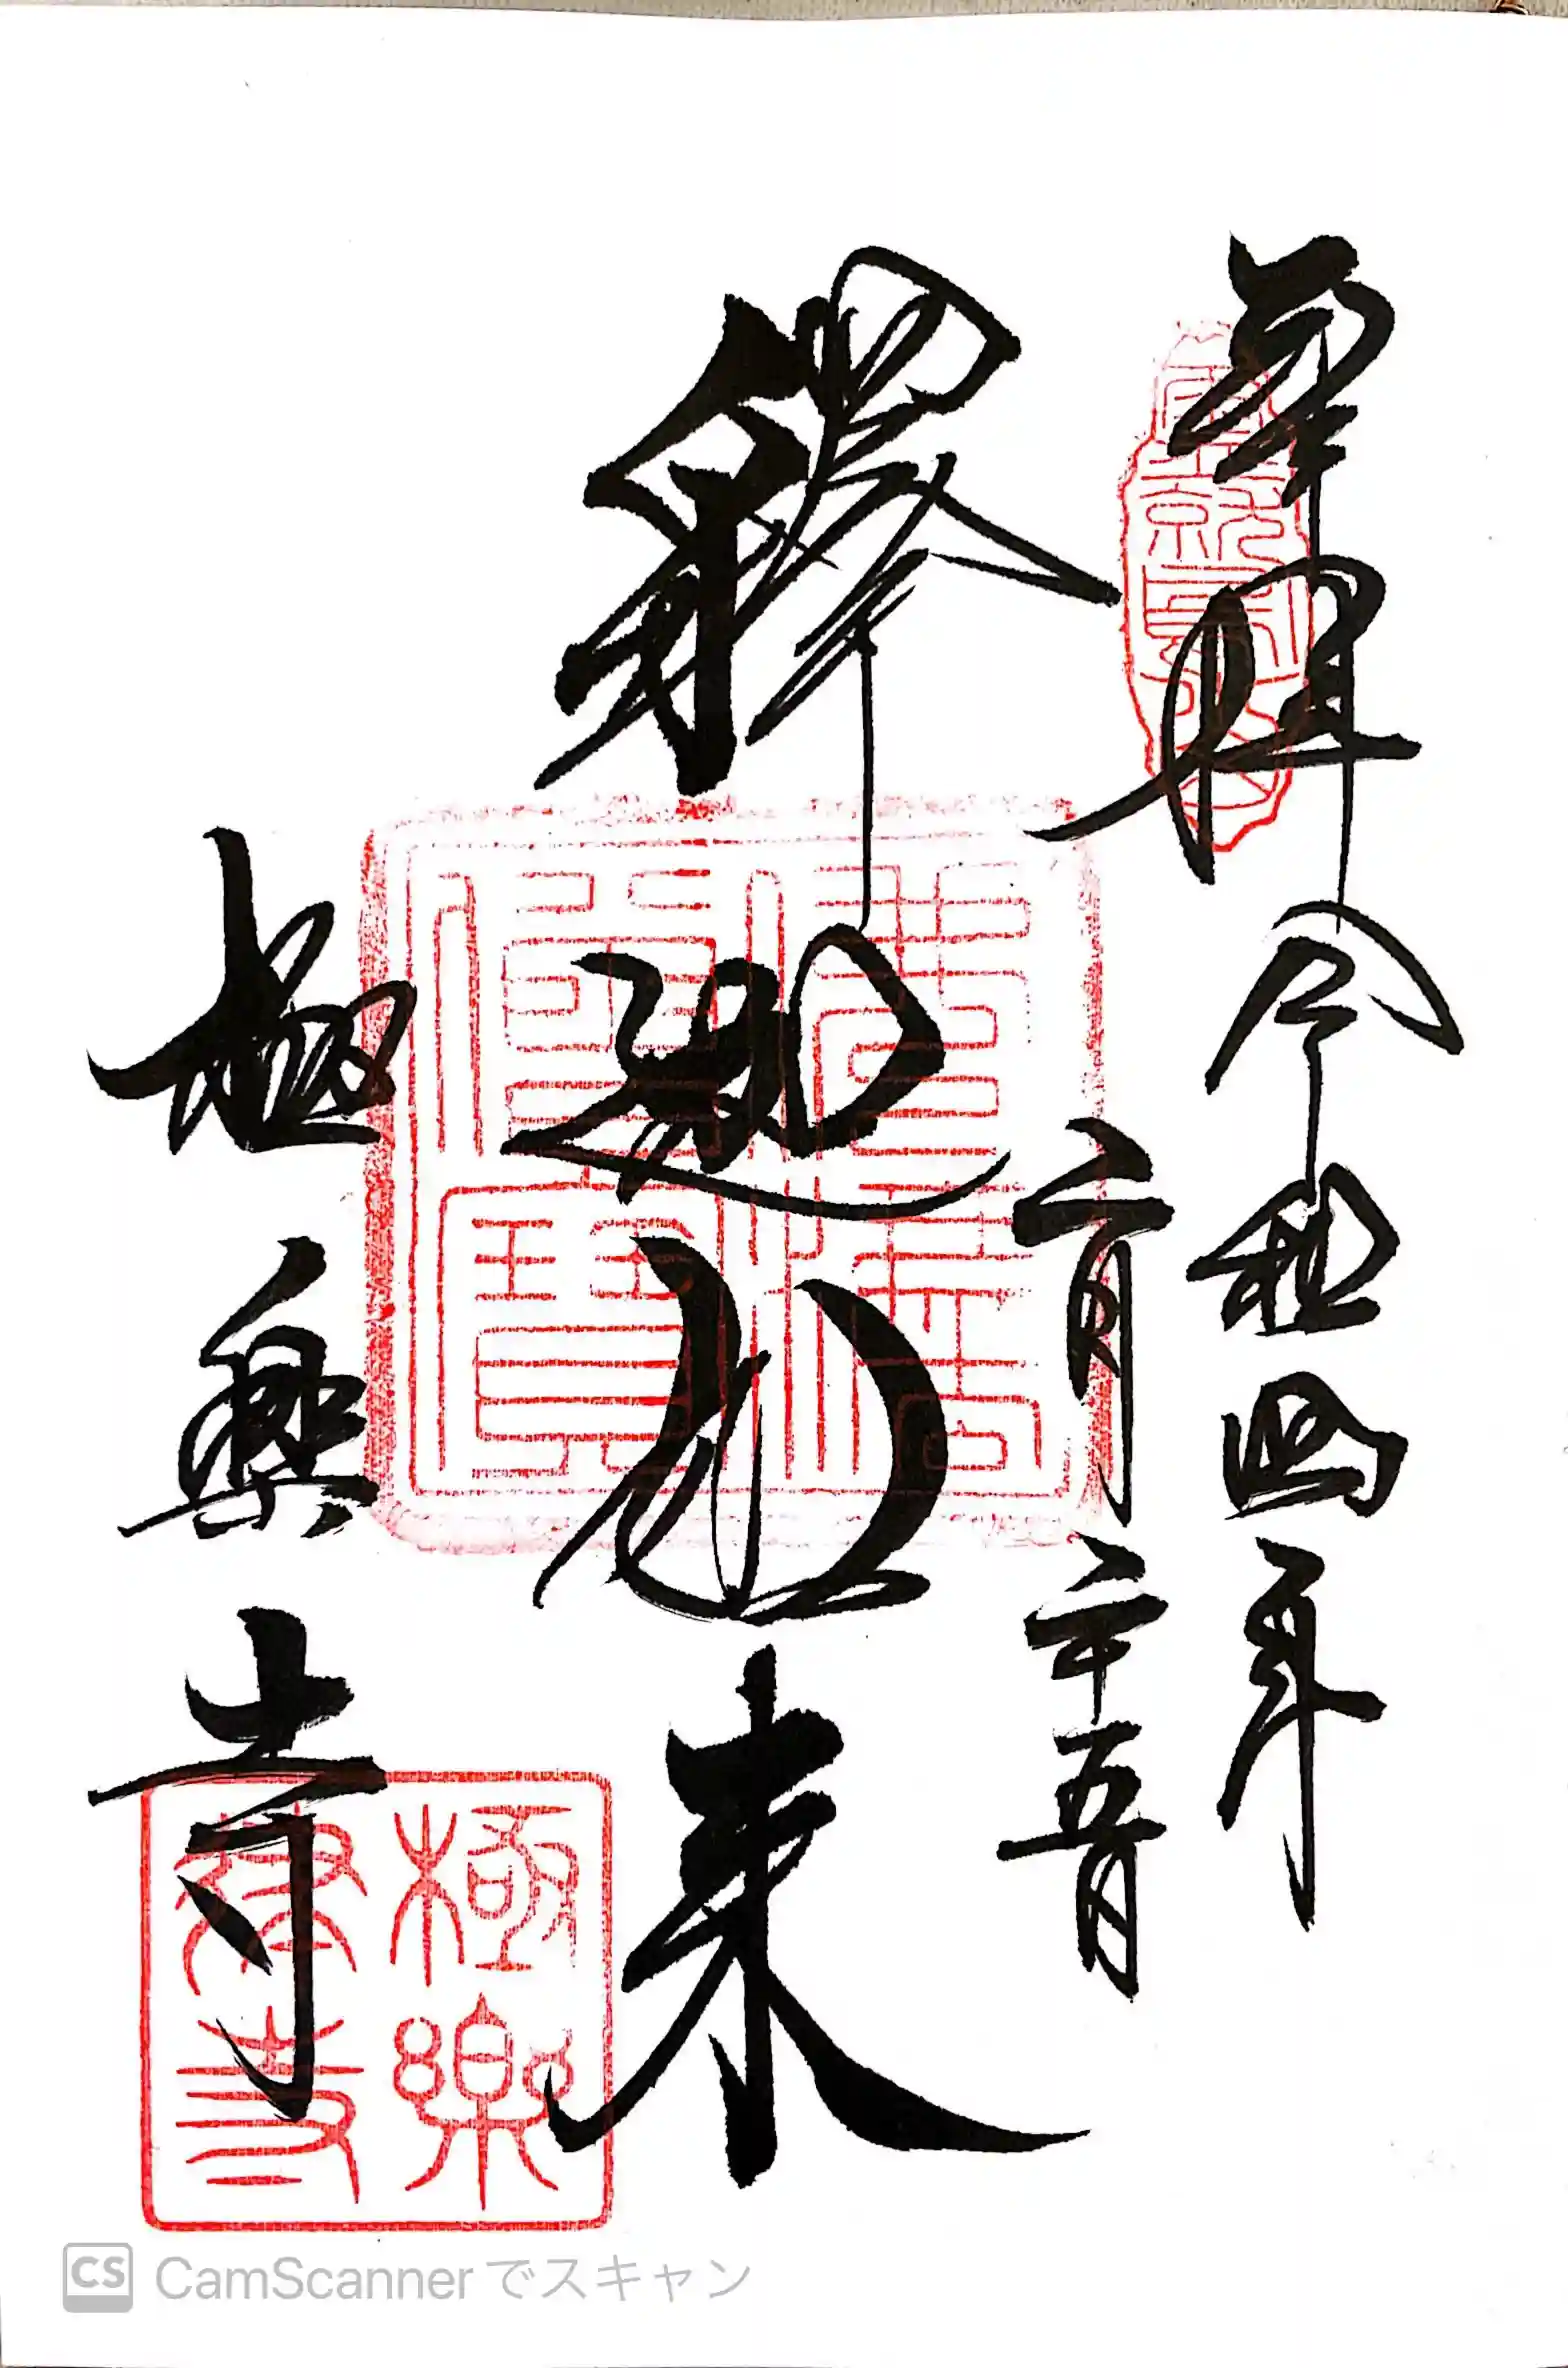 奉拝 令和四年
二月二十五日
釋迦如来
極楽寺
極樂律寺
CS CamScannerでスキャン